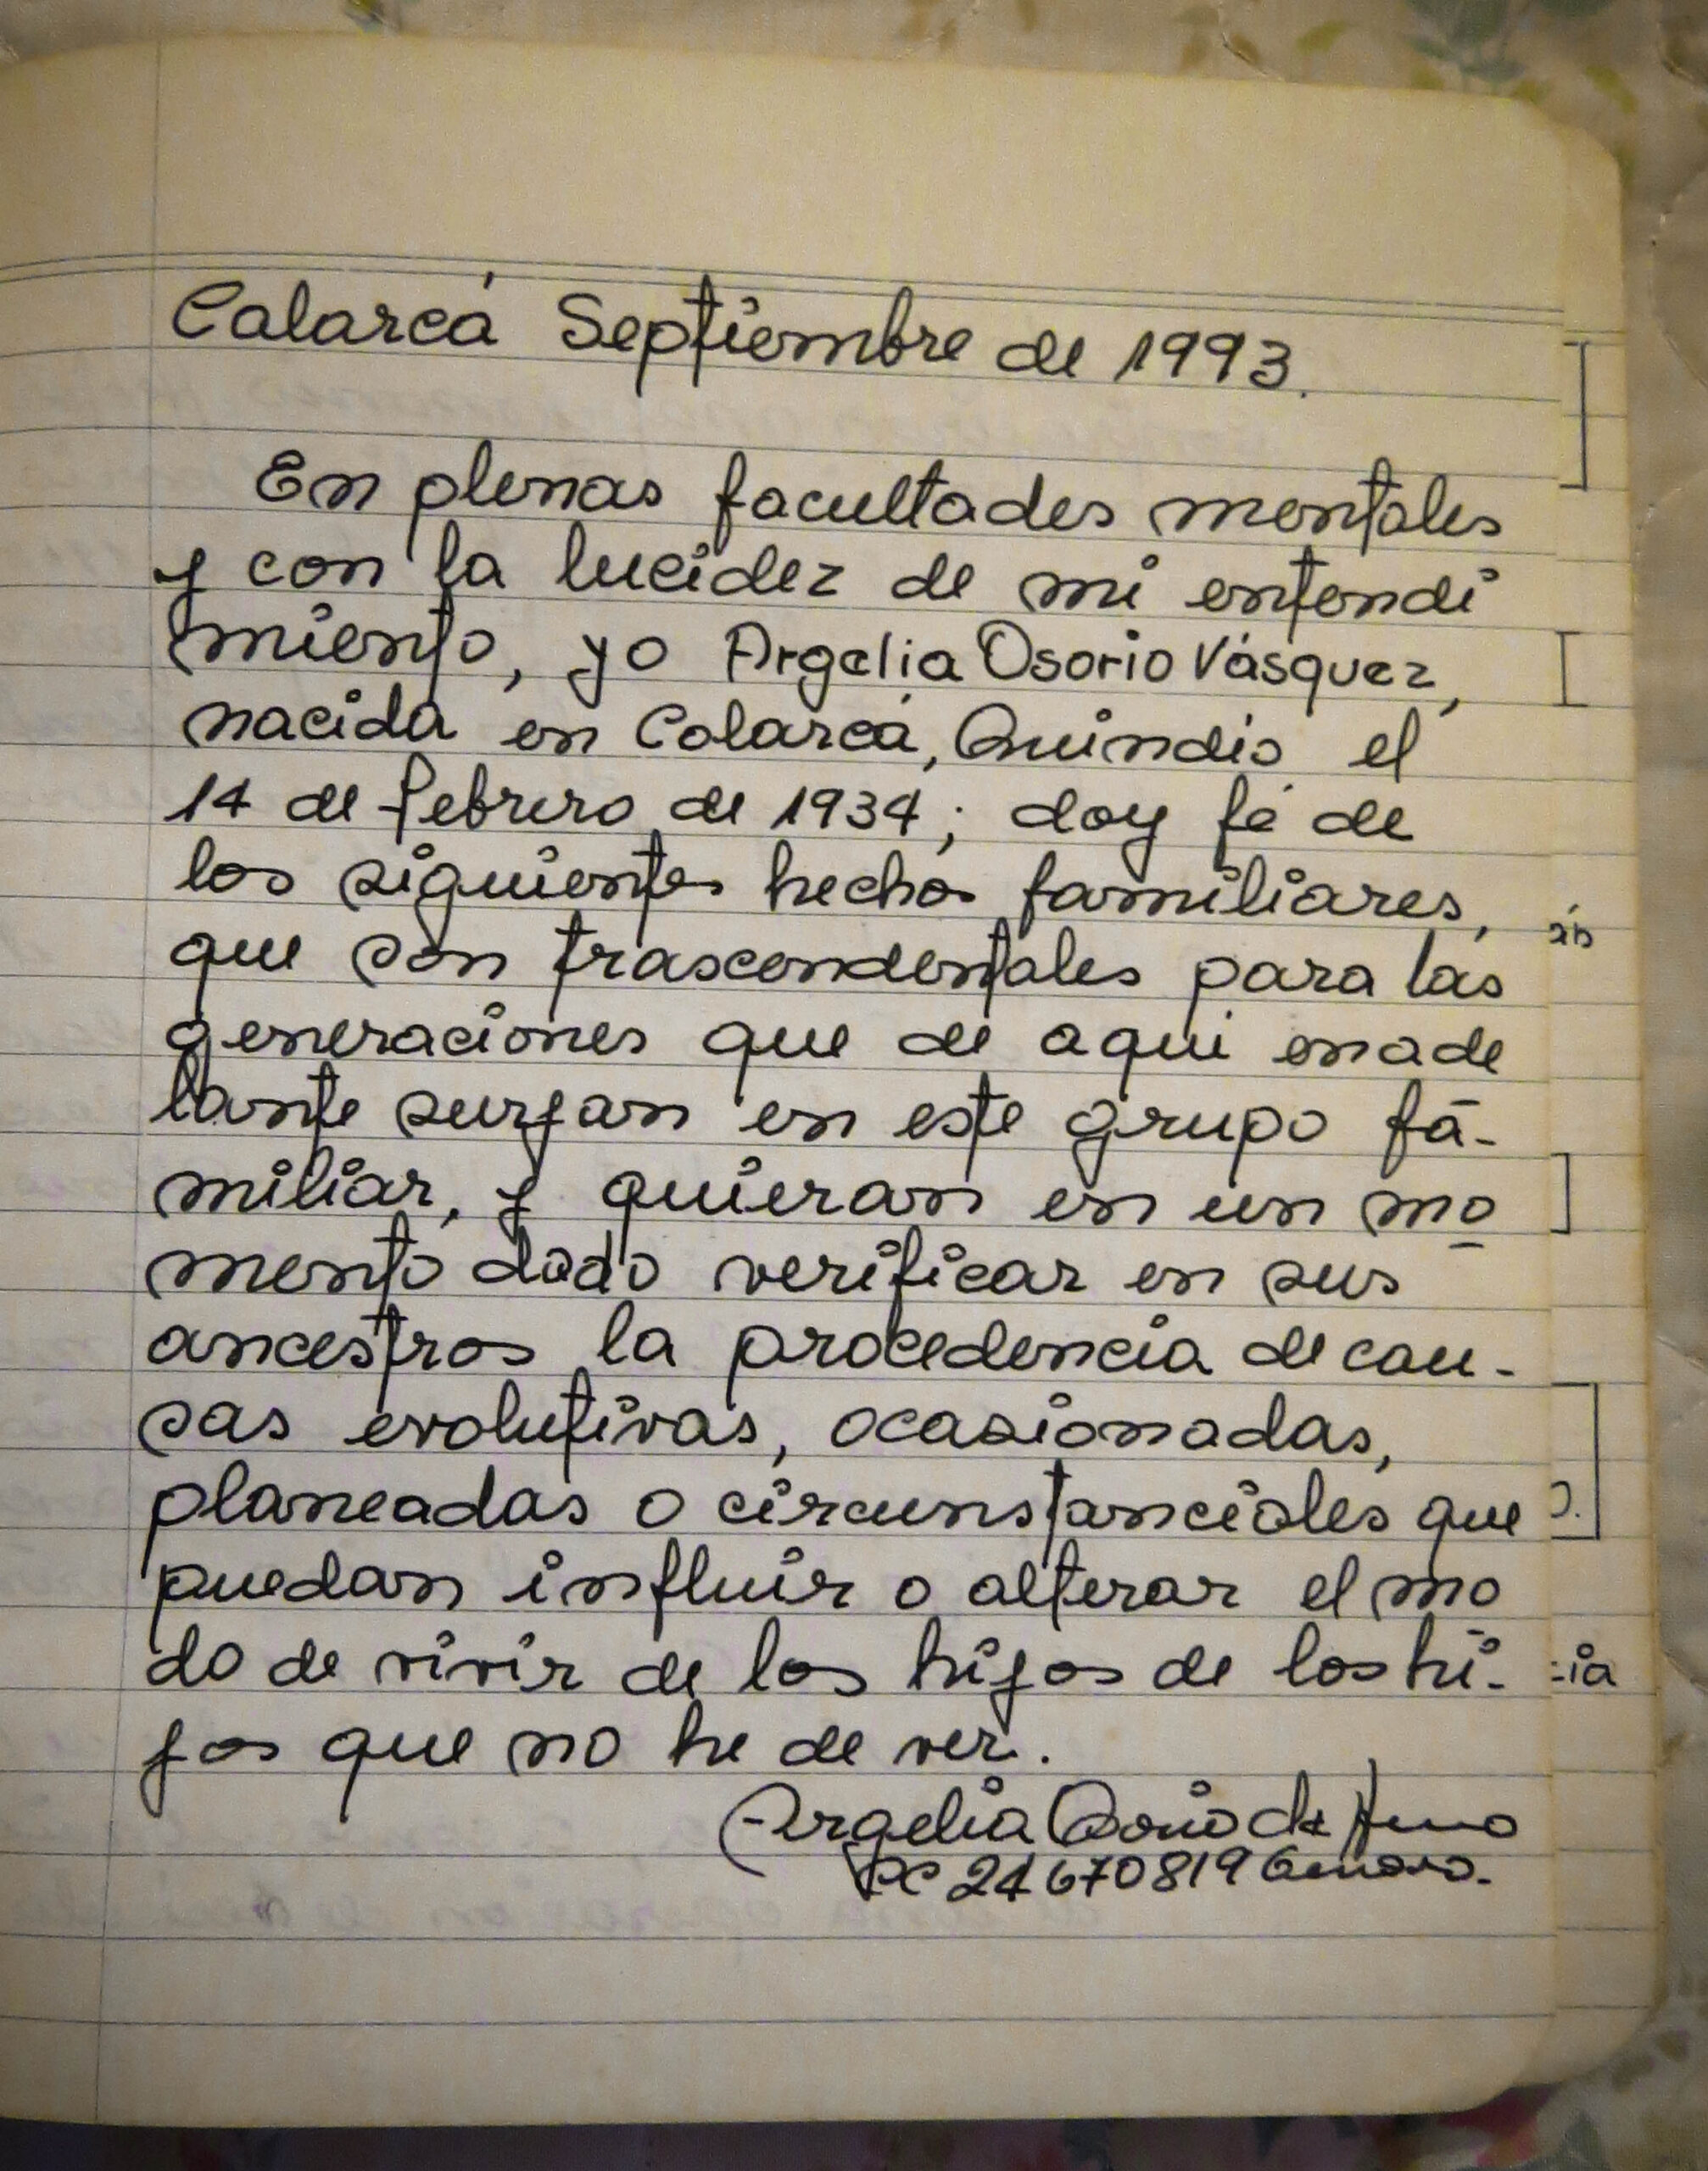 Calarcá Septiembre de 1993.
En plenas facultades mentales
y con la lucidez de mi entendi
miento, yo Argelia Osorio Vásquez,
nacida en Calarcá, Quindío el
14 de febrero de 1934; doy fé de
los siguientes hechos familiares,
que son trascendentales para las
generaciones que de aqui enade
lante surjan en este grupo fa-
miliar, y quieran en un mo
mento dado verificar en sus
ancestros la procedencia de cau-
sas evolutivas, ocasionadas,
planeadas o circunstanciales que
puedan influir o alterar el mo
do de vivir de los hijos de los hi-
jos que no he de ver.
Argelia Osorio de
CC 24670819